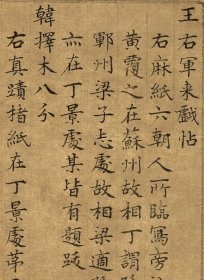 王右軍来戲帖
右麻紙六朝人所臨寫旁
黄霞之在蘇州故相丁謂跡
鄆州梁子志處故相梁適
亦在丁景處某皆有題跋
韓擇木八分
右真蹟楮紙在丁景處第